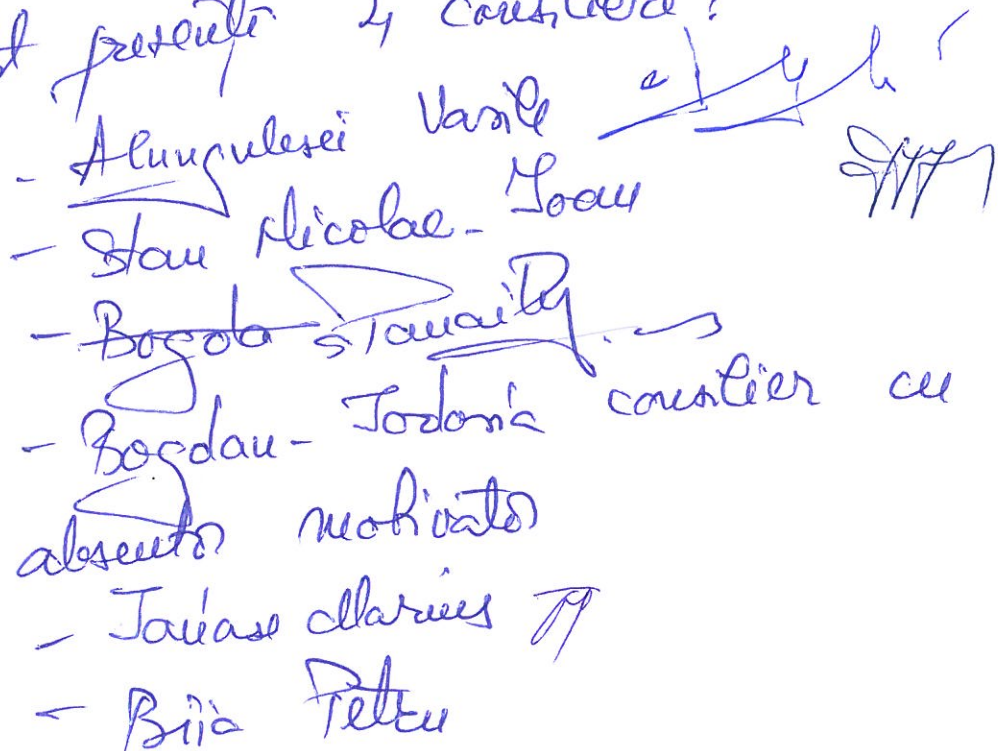 prezenți 4 consilieri:
- Alungulesei Vasile
- Stan Nicolae-Ioan
- Bogda
- Bogdan- Iodosia consilier cu
absență motivată
- Tanase Marius
- Petru